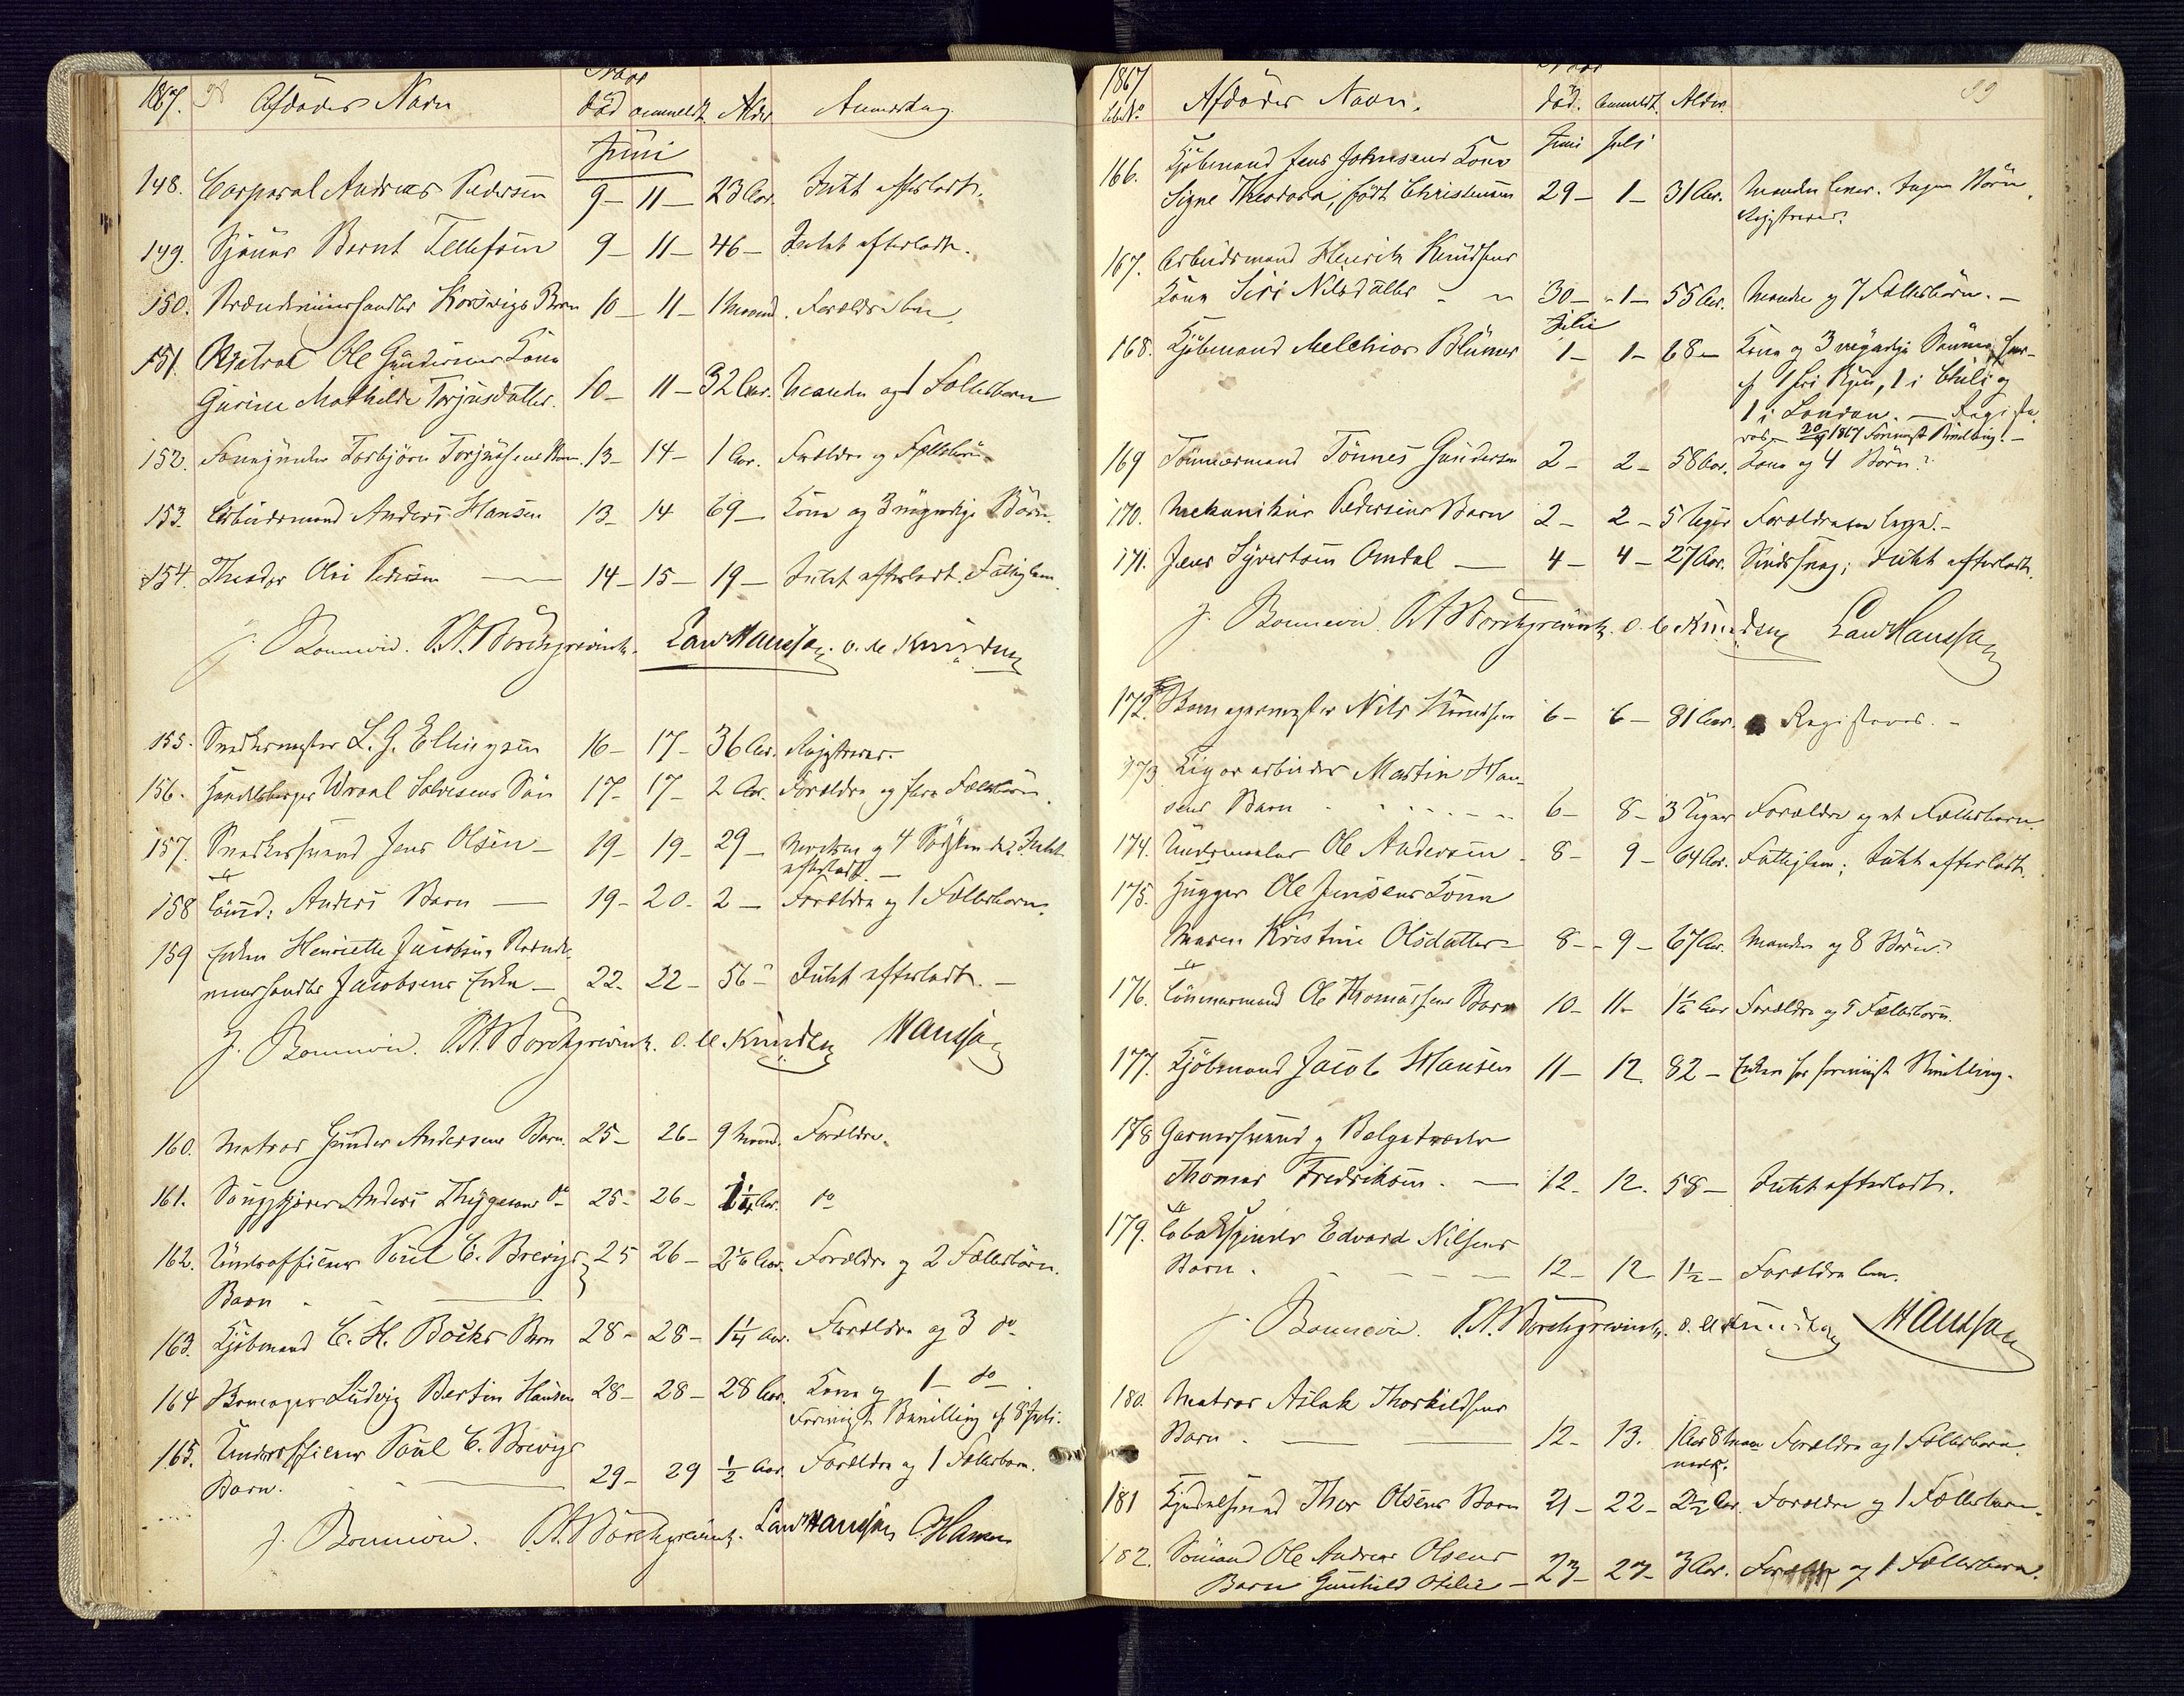 1867. 38 Afdødes Navn død anmeldt. Alder Anmerkning
Juni
148. Corporal Andreas Pedersen 9 – 11 – 23 Aar. Intet efterladt.
149. Sjøuer Bernt Tellefsen 9 – 11 – 46 – Intet efterladt.
150. Brændeviinshandler Korsvigs Barn 10 – 11 – 1 Maaned. Forældre
151. Matros Ole Gundersens Kone
Gurine Mathilde Torjusdatter. 10 – 11 – 32 Aar. Manden og 1 Fællesbarn
152. Torbjørn Torjussens Barn. 13 – 14 – 1 Aar. Forældre og Fællesbørn.
153. Arbeidsmand Anders Hansen 13 – 14 69 – Kone og 3 myndige Børn.
154. Theodor Olai Pedersen — 14 – 15 – 19 – Intet efterladt. Fattiglem.
J. Bonnevie. Borchgrevink. Lau Hanssen. O. M. Knudsen
155. Snedkermester L. G. Ellingsen 16 – 17 – 36 Aar. Registreret.
156. Handelsborger Wraal Solvesens Søn 17 – 17 – 2 Aar. Forældre og flere Fællesbørn.
157. Snedkersvend Jens Olsen – 19 – 19 – 29 – Moder og 4 Sødskende, Intet
efterladt. –
158 Anders Barn — 19 – 20 – 2 – Forældre og 1 Fællesbarn.
159 Enken Henriette Jacobsen, Brænde-
viinshandler Jacobsens Enke – 22. 22 – 56 – Intet efterladt. –
J. Bonnevie. Borchgrevink. O. M. Knudsen Hanssen
160. Matros Gunder Andersens Barn. 25 – 26 – 9 Maand. Forældre.
161. Anders Thygesens do 25 – 26 – 1¼ Aar. do
162. Underofficeer Poul C. Brevigs 25 26 – Aar. Forældre og 2 Fællesbørn.
Barn –
163. Kjøbmand C. H. Bocks Barn 28 – 28 – 1¼ Aar. Forældre og 3 do
164 Skomager Ludvig Bertin Hansen 28 – 28 – 28 Aar. Kone og 1 – do
Forenigt Samling 8 Juli.
165. Underofficeer Poul C. Brevigs
Barn. 29 – 29 ½ Aar. Forældre og 1 Fællesbarn.
J. Bonnevie. Borchgrevink. Lau Hanssen Hansen
1867 39
Løb No Afdødes Navn. død. Anmeldt. Alder.
Juni Juli
166. Kjøbmand Jens Johnsens Kone
Signe Theodora, født Christensen 29 – 1 – 31 Aar. Manden lever. Ingen Børn.
Registreret.
167. Arbeidsmand Henrik Knudsens
Kone Siri Nilsdatter – 30 – 1 – 55 Aar. Manden og 7 Fællesbørn. –
Juli
168. Kjøbmand Melchior Blumer 1 – 1 – 68 – Kone og 3 myndige Sønner, hvor-
af 1 her i Byen, 1 i Chili og
1 i London. — Registre-
res 20/9 1867 Foreningst Samling! –
169 Tømmermand Tønnes Gundersen 2 – 2 – 58 Aar. Kone og 4 Børn.
170. Mekanikus Pedersens Barn 2 – 2 – 5 Uger Forældrene
171. Jens Syvertsen Omdal — 4 – 4 – 27 Aar. Sindssvag; Intet efterladt.
J. Bonnevie. Borchgrevink. O. M. Knudsen Lau Hanssen
172. Skomagermester Nils Knudsen 6 – 6 – 81 Aar. Registreres. –
173 Martin Han-
sens Barn 6 – 8 – 3 Uger Forældre og et Fællesbarn.
174. Ole Andersen – 8 – 9 – 64 Aar. Fattiglem; Intet efterladt.
175. Hugger Ole Jensens Kone
Maren Kristine Olsdatter – 8 – 9 – 67 Aar. Manden og 8 Børn.
176. Tømmermand Ole Thomassens Barn 10 – 11 – Aar Forældre og 5 Fællesbørn.
177. Kjøbmand Jacob Hansen 11 – 12. 82 – Enken har foreningst Samling.
178 Garversvend og Belgetræder
Thomas Fredriksen. — 12 – 12. 58 – Intet efterladt.
179. Tobaksspinder Edvard Nilsens
Barn. 12 – 12 1½ – Forældre
J. Bonnevie. Borchgrevink. O. M. Knudsen Hanssen
180. Matros Aslak Thorkildsens
Barn. — 12 – 13. 1 Aar 8 Maa- Forældre og 1 Fællesbarn.
neder.
181 Thor Olsens Barn 21 – 22 – 2½ Aar. Forældre og 1 Fællesbarn.
182. Sømand Ole Andreas Olsens
Barn Gunhild Otilie – 27 – 27 – 3 Aar. Forældre og 1 Fællesbarn.